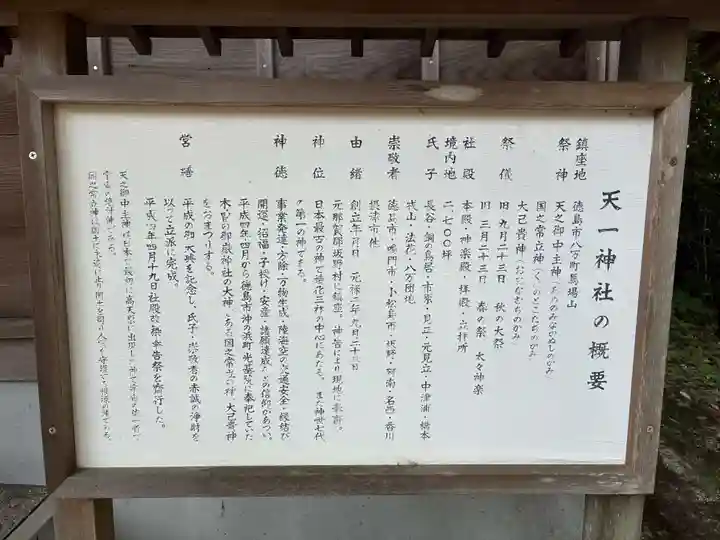 天一神社の概要
鎮座地 徳島市八万町馬場山
祭神 天之御中主神（あめのみなかぬしのかみ）
国之常立神（くにのとこたちのかみ）
大己貴神（おおなむちのかみ）
祭儀 旧 九月二十三日 秋の大祭
旧 三月二十三日 春の祭 太々神楽
社殿 本殿・神楽殿・拝殿・
境内地 二、七〇〇坪
氏子 長谷・銅の鳥居・市原・見正・元見立・中津浦・橋本
戎山・法花・八万団地
崇敬者 徳島市・鳴門市・小松島市・板野・阿南・名西・香川
摂津市他
由緒 創立年月日 元禄二年九月二十三日
元那賀郡坂野村に鎮座、神告により現地に奉斎。
神位 日本最古の神で造化三神の中心にあたる。また神世七代
の第一の神である。
神徳 事業発達・方除・万物生成・陸海空の交通安全・縁結び
開運・招福・子授け・安産・諸願達成・の信仰があつい。
平成四年四月から徳島市沖の浜町光善院に奉祀していた
木曽の御嶽神社の大神である国之常立神・大己貴神
をおまつりする。
営繕 平成の御大典を記念し、氏子・崇敬者の赤誠の浄財を
以って立派に完成。
平成四年四月十九日社殿改築奉告祭を斎行した。
天之御中主神は日本で最初に高天原に出現した神で